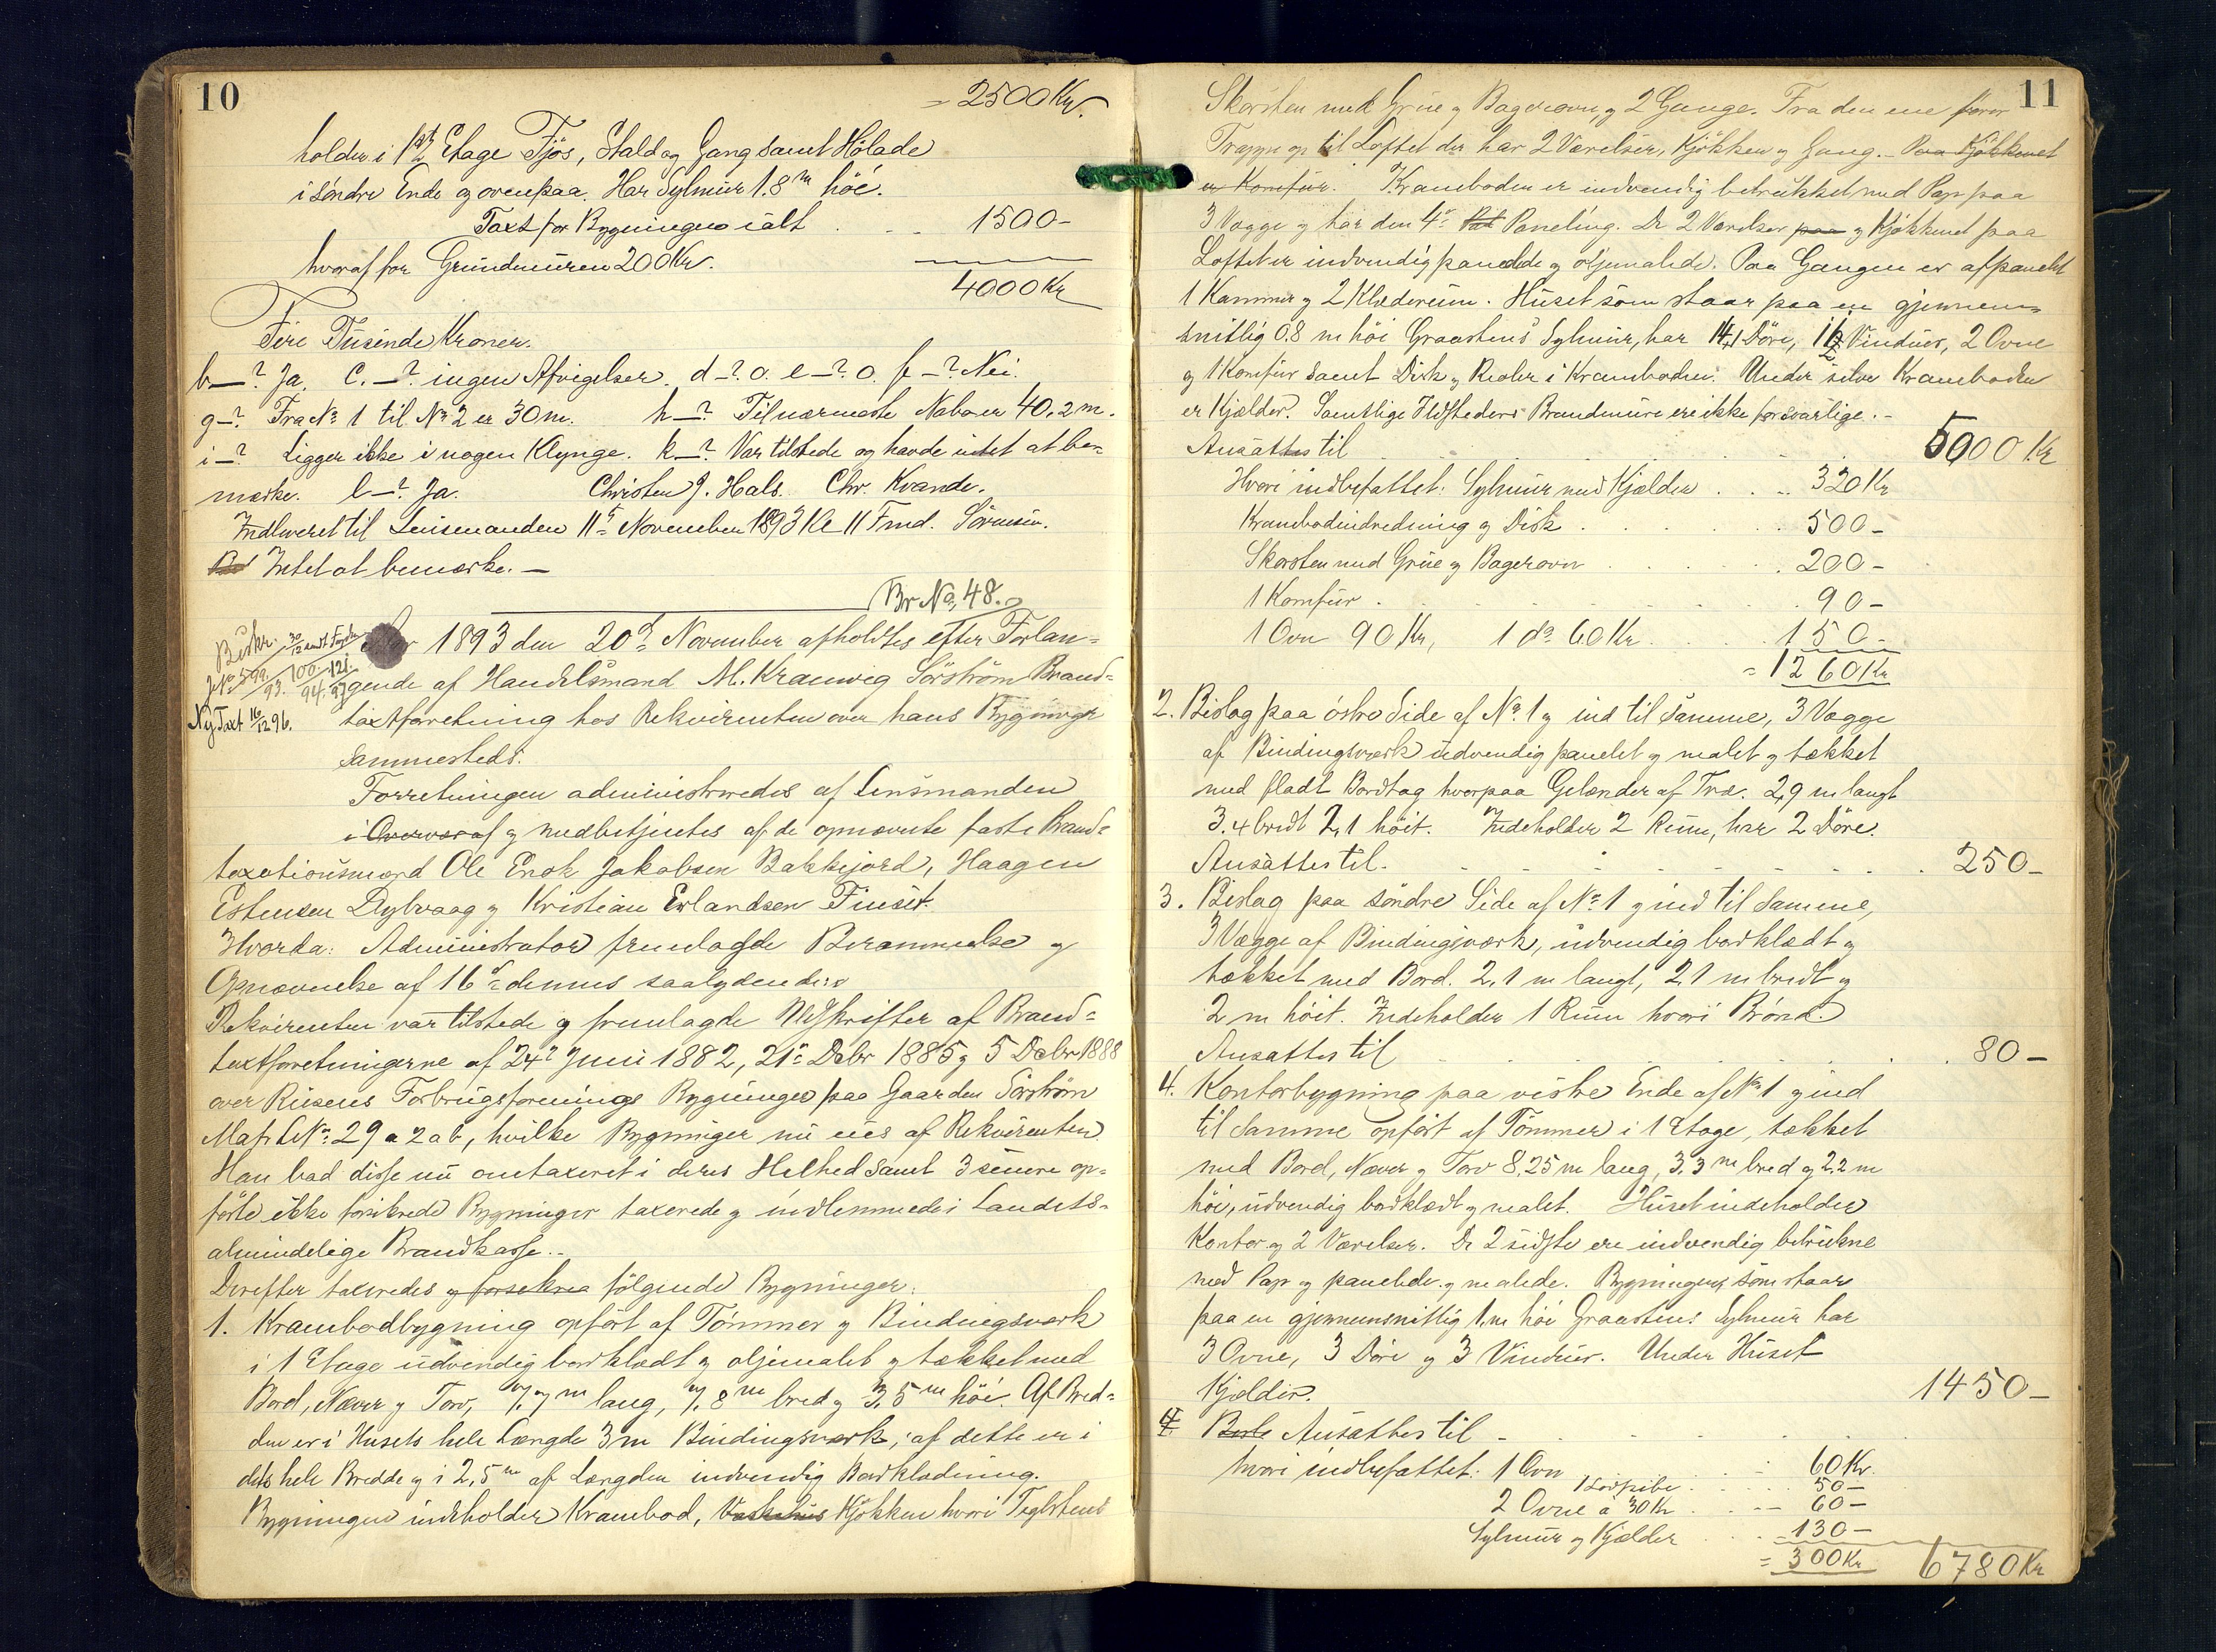 10
= 2500 Kr.
holder i 1st Etage Fjøs, Stald og Gang samt Hölade
i söndre Ende og ovenpaa. Har Sylmur 1.8 m höi.
Taxt for Bygningen ialt . . . 1500 -
hvoraf for Grundmuren 200 Kr.
4000 Kr
Fire Tusinde Kroner.
b—? Ja. c.—? ingen Afvigelser. d—? o. e—? o. f—? Nei.
g—? Fra No 1 til No 2 er 30 m. h—? Til nærmeste Naboer 40,2 m.
i—? Ligger ikke i nogen Klynge. k—? Var tilstede og havde intet at be-
mærke. l—? Ja. Christen J. Hals. Chr. Kvande.
Indleveret til Lensmanden 11te November 1893 Kl 11 Fmd. Sörensen.
Intet at bemærke. —
Br No, 48.
Aar 1893 den 20de November afholdtes efter Forlan-
gende af Handelsmand M. Kramvig Sörström Brand-
Ny Taxt 16/12 96.
taxtforretning hos Rekvirenten over hans Bygninger
sammesteds.
Forretningen administreredes af Lensmanden
i Overvær af og medbetjentes af de opnævnte faste Brand-
taxationsmænd Ole Enok Jakobsen Bakkejord, Haagen
Estensen Dybvaag og Kristian Erlandsen Finset.
Hvorda: Administrator fremlagde Berammelse og
Opnævnelse af 16de dennes saalydende:
Rekvirenten var tilstede og fremlagde Udskrifter af Brand-
taxtforretningerne af 24de Juni 1882, 21de Decbr 1885 og 5 Decbr 1888
over Risens Forbrugsforenings Bygninger paa Gaarden Sörström
Matr L No 29 a 2 a b, hvilke Bygninger nu eies af Rekvirenten.
Han bad disse nu omtaxeret i deres Helhed samt 3 senere op-
förte ikke forsikrede Bygninger taxerede og indlemmede i Landets
almindelige Brandkasse.-
Derefter taxeredes og forsikres fölgende Bygninger:
1. Krambodbygning opfört af Tömmer og Bindingsværk
i 1 Etage udvendig bordklædt og oljemalet og tækket med
Bord, Næver og Torv, 7,7 m lang, 7,8 m bred og 3,5 m höi. Af Bred-
den er i Husets hele Længde 3 m Bindingsværk, af dette er i
dets hele Bredde og i 2,5 m af Længden indvendig Bordklædning.
Bygningen indeholder Krambod, Vaskehus Kjökken hvori Teglstens
11
Skorsten med Grue og Bagerovn, og 2 Gange. Fra den ene förer
Trappe op til Loftet der har 2 Værelser, Kjökken og Gang. - Paa Kjökkenet
er Komfur. Kramboden er indvendig betrukket med Pap paa
3 Vægge og har den 4de Paneling. De 2 Værelser paa og Kjökkenet paa
Loftet er indvendig panelede og oljemalede. Paa Gangen er afpanelet
1 Kammer og 2 Klederum. Huset som staar paa en gjennem-
snitlig 0.8 m höi Graastens Sylmur, har 14 Döre, 16 Vinduer, 2 Ovne
og 1 Komfur samt Disk og Reoler i Kramboden. Under selve Kramboden
er Kjælder. Samtlige Ildsteders Brandmure ere ikke forsvarlige. -
Ansættes til . . . 5000 Kr
Hvori indbefattet: Sylmur med Kjælder . . . 320 Kr
Krambodindredning og Disk . . . 500 -
Skorsten med Grue og Bagerovn . . . 200 -
1 Komfur . . . 90 -
1 Ovn 90 Kr, 1 do 60 Kr . . . 150 -
= 1260 Kr
2. Bislag paa östre Side af No 1 og ind til samme, 3 Vægge
af Bindingsværk udvendig panelet og malet og tækket
med fladt Bordtag hvorpaa Gelænder af Træ. 2,9 m langt
3.4 bredt 2,1 höit. Indeholder 2 Rum, har 2 Döre.
Ansættes til . . . 250 -
3. Bislag paa söndre Side af No 1 og ind til samme,
3 Vægge af Bindingsværk, udvendig bordklædt og
tækket med Bord. 2,1 m langt, 2,1 m bredt og
2 m höit. Indeholder 1 Rum hvori Brönd.
Ansættes til . . . 80 -
4. Kontorbygning paa vestre Ende af No 1 og ind
til samme opfört af Tömmer i 1 Etage, tækket
med Bord, Næver og Torv 8,25 m lang, 3,3 m bred og 2,2 m
höi, udvendig bordklædt og malet. Huset indeholder
Kontor og 2 Værelser. De 2 sidste ere indvendig betrukne
med Pap og panelede og malede. Bygningen, som staar
paa en gjennemsnitlig 1 m höi Graastens Sylmur har
3 Ovne, 3 Döre og 3 Vinduer. Under Huset
Kjælder. 1450 -
Ansættes til - . . .
hvori indbefattet: 1 Ovn . . . 60 Kr.
1 Lodpibe . . . 50 -
2 Ovne à 30 Kr . . . 60 -
Sylmur og Kjælder . . . 130 -
= 300 Kr 6780 Kr